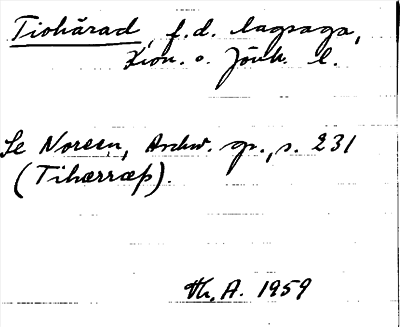 Tiohärad, f.d. lagsaga,
Kron. o. Jönk. l.
Se Noreen, Aschw. gr., s. 231
(Tihærræþ).
Th. A. 1959